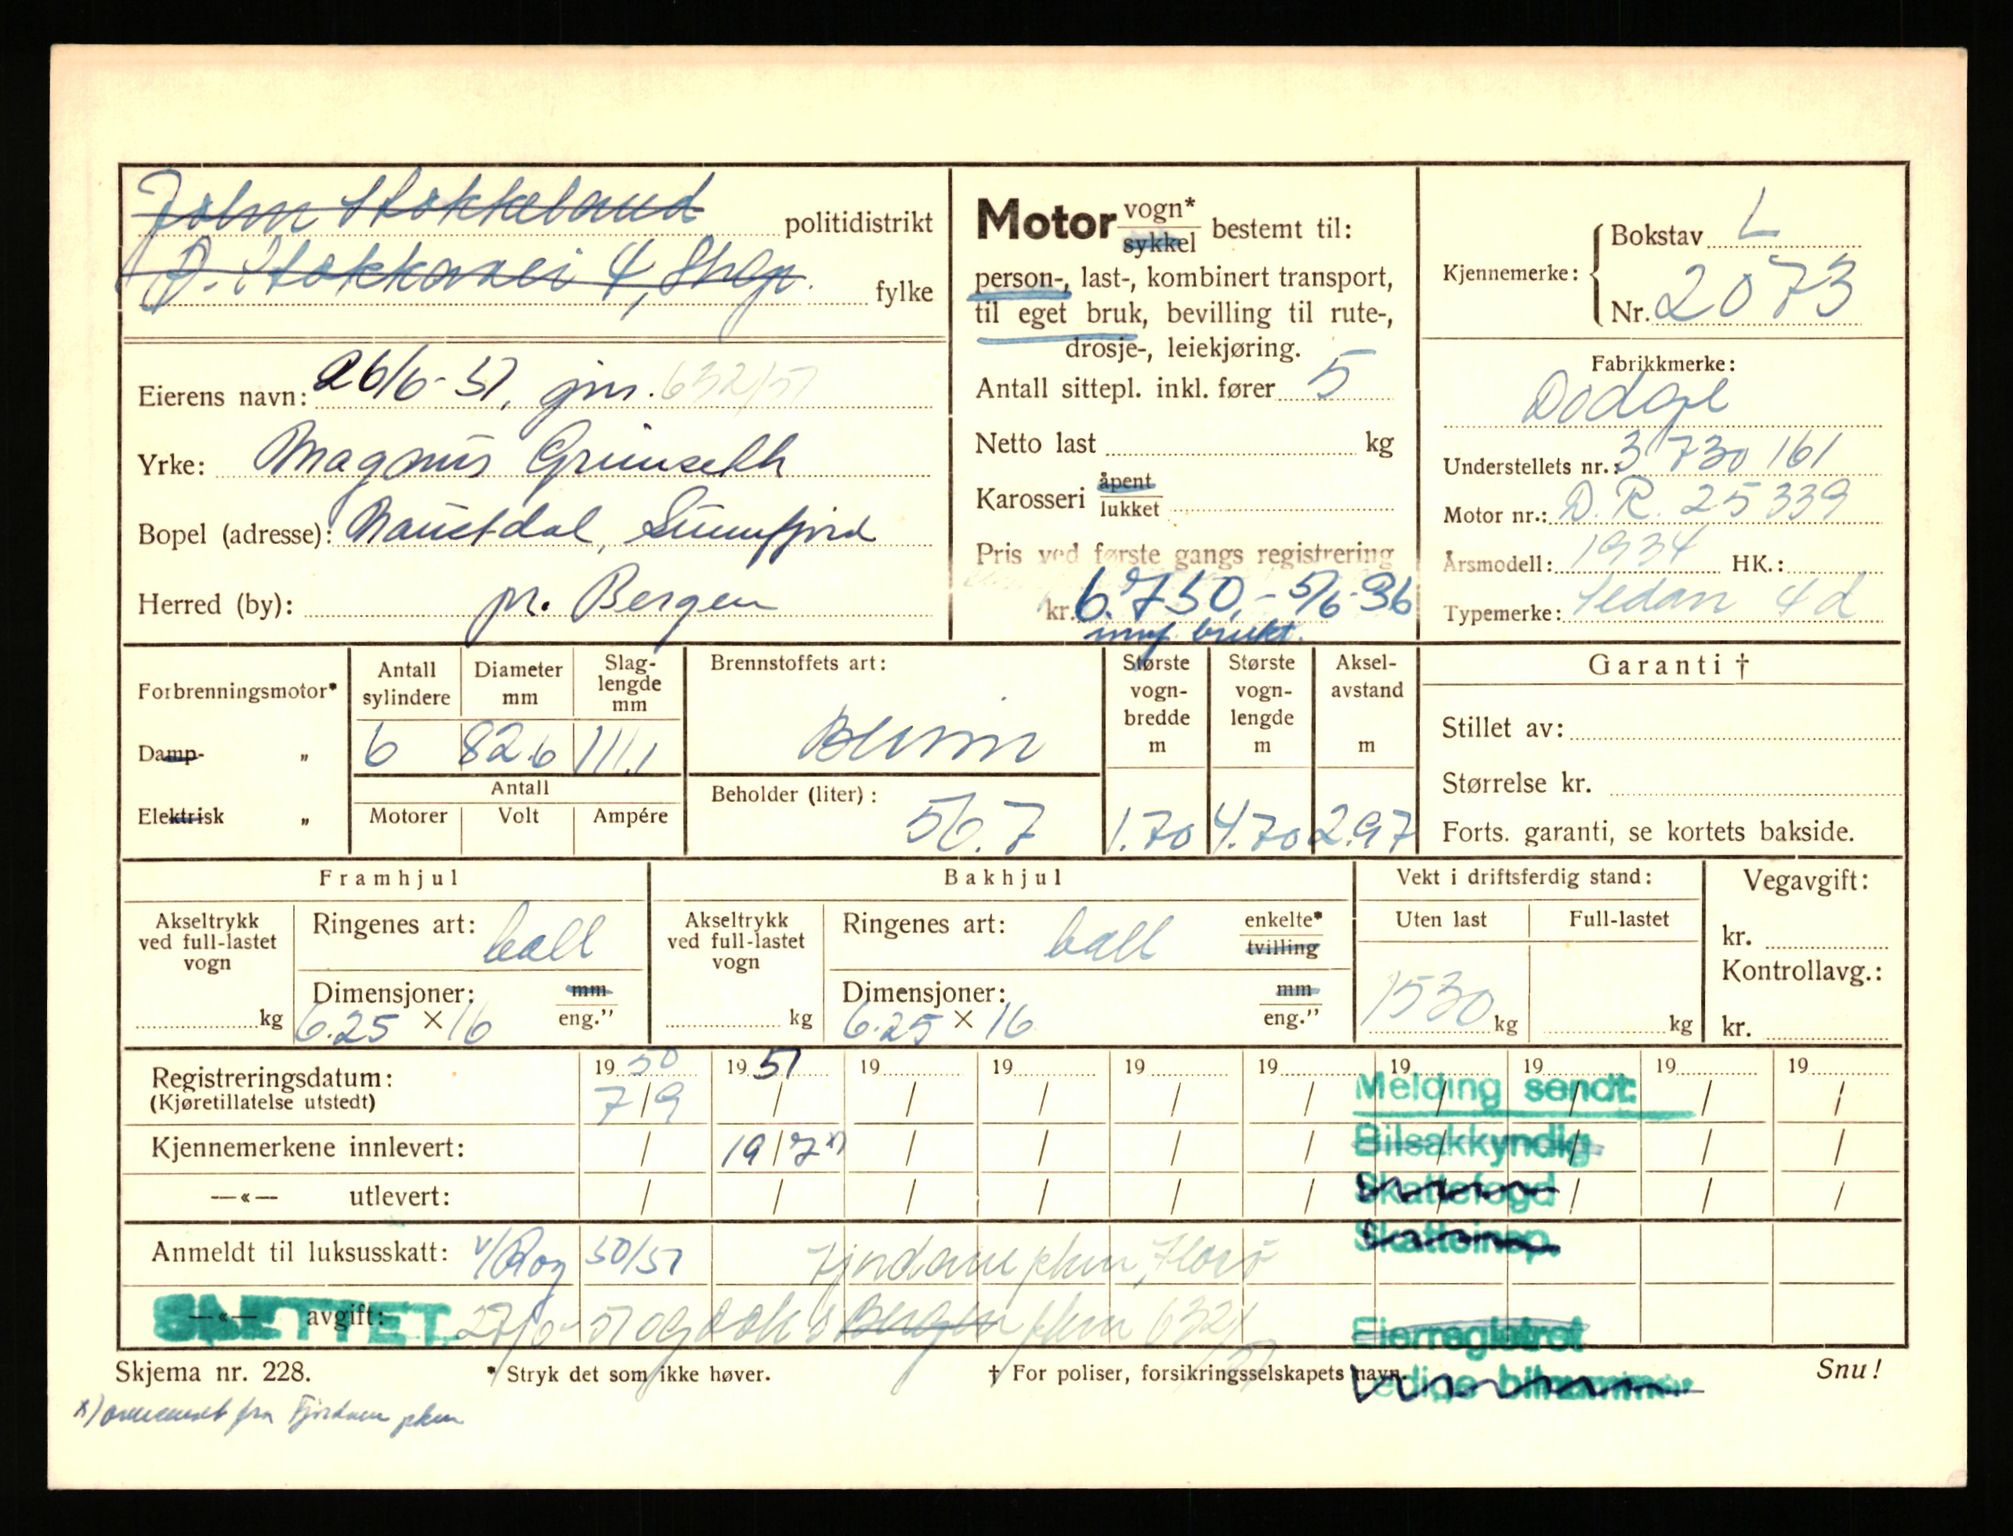 John Stokkeland politidistrikt
Ø. Stokkavei 4, Stvgr. fylke
Eierens navn: 26/6-51, jnr. 632/51
Yrke: Magnus Grimseth
Bopel (adresse): Naustdal, Sunnfjord
Herred (by): pr. Bergen
Motor vogn* sykkel bestemt til:
person-, last-, kombinert transport,
til eget bruk, bevilling til rute-,
drosje-, leiekjøring.
Antall sittepl. inkl. fører 5
Netto last kg
Karosseri åpent lukket
Pris ved første gangs registrering
kr. 6.750,- 5/6-36
innf. brukt.
Kjennemerke: Bokstav L
Nr. 2073
Fabrikkmerke:
Dodge
Understellets nr.: 3730161
Motor nr.: D.R. 25339
Årsmodell: 1934 HK.:
Typemerke: Sedan 4d
Forbrenningsmotor*
Damp- „
Elektrisk „
Antall sylindere Diameter mm Slag-lengde mm
6 82.6 111.1
Antall
Motorer Volt Ampére
Brennstoffets art:
Bensin
Beholder (liter):
56.7
Største vogn-bredde m Største vogn-lengde m Aksel-avstand m
1.70 4.70 2.97
Garanti †
Stillet av:
Størrelse kr.
Forts. garanti, se kortets bakside.
Framhjul
Akseltrykk ved full-lastet vogn
kg
Ringenes art: ball
Dimensjoner: mm
6.25 × 16 eng."
Bakhjul
Akseltrykk ved full-lastet vogn
kg
Ringenes art: ball enkelte* tvilling
Dimensjoner: mm
6.25 × 16 eng."
Vekt i driftsferdig stand:
Uten last Full-lastet
1530 kg kg
Vegavgift:
kr.
Kontrollavg.:
kr.
19 50 19 51 19 19 19 19 19 19 19 19
Registreringsdatum: 7/9 / / / / / / / / /
(Kjøretillatelse utstedt)
Kjennemerkene innlevert: / 19/7 x) / / / / / / / /
—«— utlevert: / / / / / / / / / /
Anmeldt til luksusskatt: v/Rog 50/51 Fjordane pkm, Florø
—«— avgift: 27/6-51 Bergen pkm 632/51
SLETTET
Melding sendt:
Bilsakkyndig
Skattefogd
Skatteinsp.
Eierregistret
Ledige bilnummer
Skjema nr. 228. * Stryk det som ikke høver. † For poliser, forsikringsselskapets navn. Snu!
x) fra Fjordane pkm